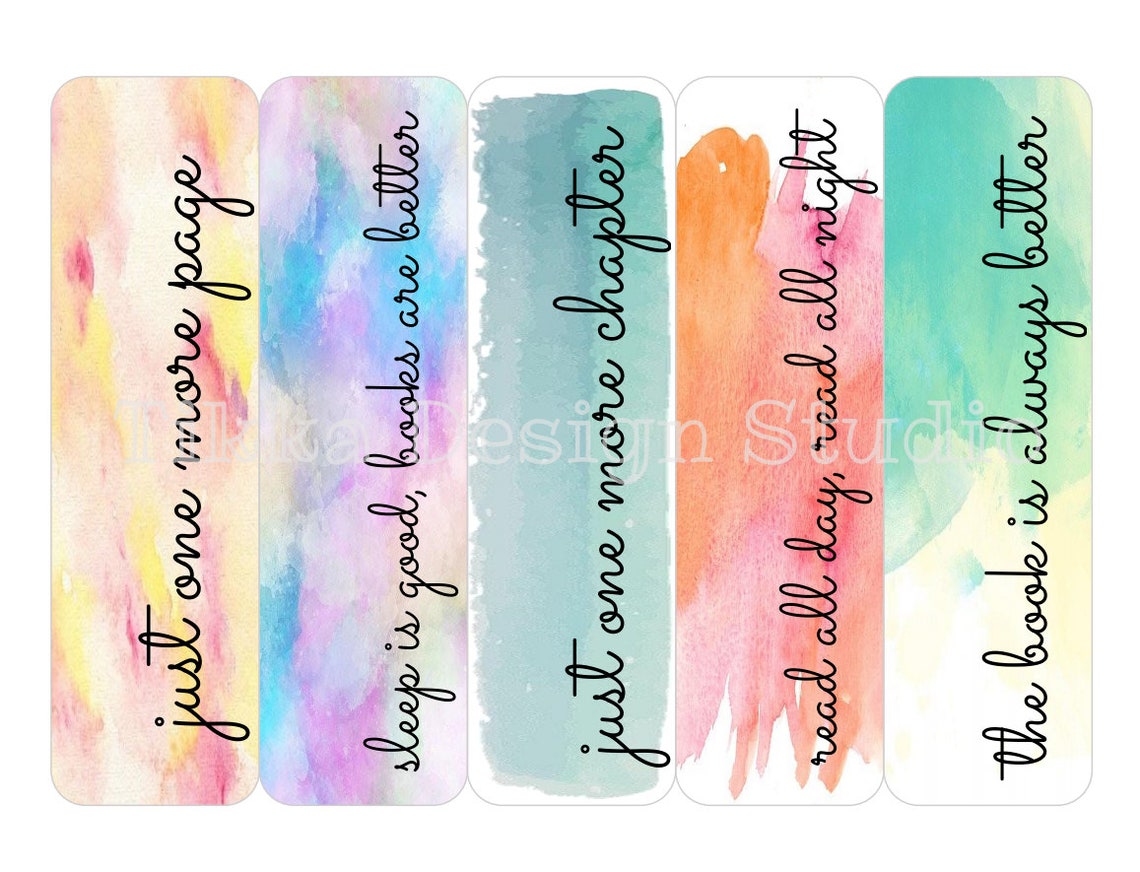 just one more page
sleep is good, books are better
just one more chapter
read all day, read all night
the book is always better
Tikka Design Studio